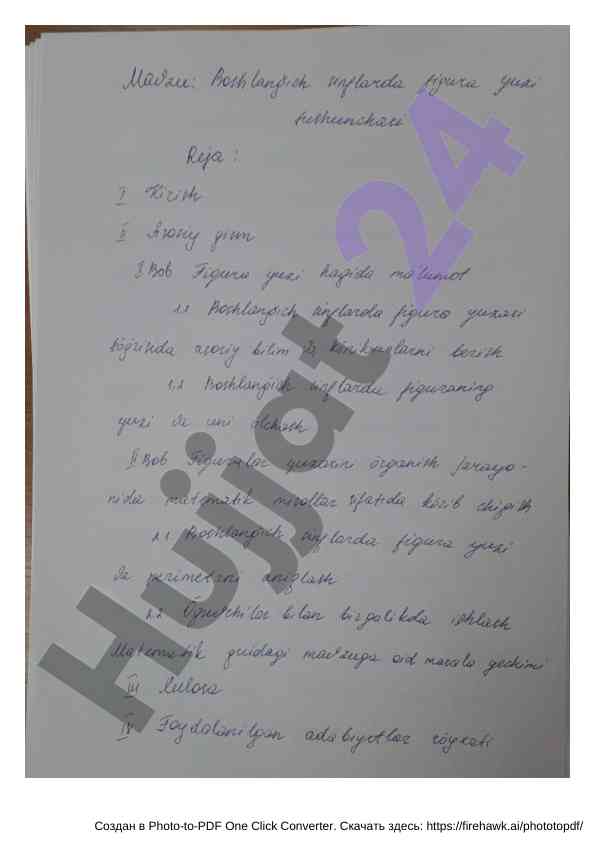 Mavzu: Boshlang'ich sinflarda figura yuzi
tushunchasi
Reja:
I Kirish
II Asosiy qism
I Bob Figura yuzi haqida ma'lumot
1.1 Boshlang'ich sinflarda figura yuzasi
to'g'risida asosiy bilim va ko'nikmalarni berish
1.2 Boshlang'ich sinflarda figuraning
yuzi va uni o'lchash
II Bob Figuralar yuzasini o'rganish jarayo-
nida matematik misollar sifatida ko'rib chiqish
2.1 Boshlang'ich sinflarda figura yuzi
va perimetrni aniqlash
2.2 O'quvchilar bilan birgalikda ishlash
Matematik quidagi mavzuga oid masala yechimi
III Xulosa
IV Foydalanilgan adabiyotlar ro'yxati
Hujjat 24
Создан в Photo-to-PDF One Click Converter. Скачать здесь: https://firehawk.ai/phototopdf/